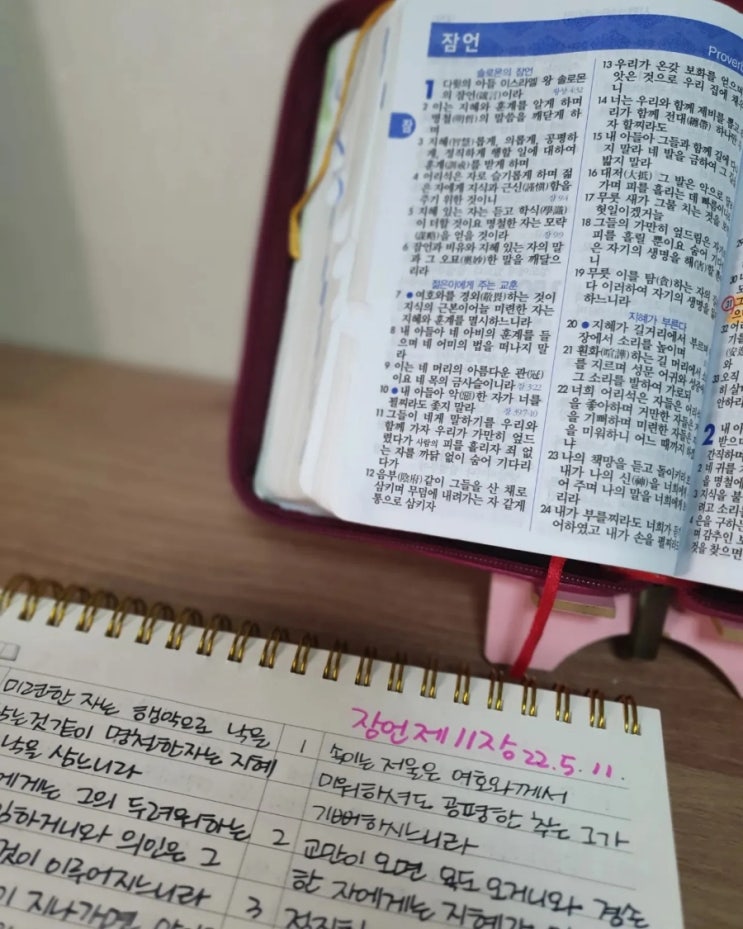 잠언
Prover
잠
솔로몬의 잠언
1 다윗의 아들 이스라엘 왕 솔로몬
의 잠언(箴言)이라 왕상4:32
2 이는 지혜와 훈계를 알게 하며
명철(明哲)의 말씀을 깨닫게 하
며
3 지혜(智慧)롭게, 의롭게, 공평하
게, 정직하게 행할 일에 대하여
훈계(訓戒)를 받게 하며
4 어리석은 자로 슬기롭게 하며 젊
은 자에게 지식과 근신(謹愼)함을
주기 위한 것이니
5 지혜 있는 자는 듣고 학식(學識)
이 더할 것이요 명철한 자는 모략
(謀略)을 얻을 것이라 잠9:9
6 잠언과 비유와 지혜 있는 자의 말
과 그 오묘(奧妙)한 말을 깨달으
리라
젊은이에게 주는 교훈
7 ●여호와를 경외(敬畏)하는 것이
지식의 근본이어늘 미련한 자는
지혜와 훈계를 멸시하느니라
8 내 아들아 네 아비의 훈계를 들
으며 네 어미의 법을 떠나지 말
라
9 이는 네 머리의 아름다운 관(冠)
이요 네 목의 금사슬이니라 잠3:22
10 ●내 아들아 악(惡)한 자가 너를
꾈찌라도 좇지 말라
11 그들이 네게 말하기를 우리와
함께 가자 우리가 가만히 엎드
렸다가 사람의 피를 흘리자 죄 없
는 자를 까닭 없이 숨어 기다리
다가
12 음부(陰府)같이 그들을 산 채로
삼키며 무덤에 내려가는 자 같게
통으로 삼키자
13 우리가 온갖 보화를 얻으며
앗은 것으로 우리 집에 채우
니
14 너는 우리와 함께 제비를 뽑고
리가 함께 전대(纏帶) 하나만
자 할찌라도
15 내 아들아 그들과 함께 길에 다
지 말라 네 발을 금하여 그
밟지 말라
16 대저(大抵) 그 발은 악으로
가며 피를 흘리는 데 빠름이니
17 무릇 새가 그물 치는 것을 보
헛일이겠거늘
18 그들의 가만히 엎드림은 자기
피를 흘릴 뿐이요 숨어
은 자기의 생명을 해(害)할
니
19 무릇 이를 탐(貪)하는 자의
다 이러하여 자기의 생명을
하느니라
지혜가 부른다
20 ●지혜가 길거리에서 부르며
장에서 소리를 높이며
21 훤화(喧譁)하는 길 머리에서
를 지르며 성문 어귀와 성중에
그 소리를 발하여 가로되
22 너희 어리석은 자들은 어리석
을 좋아하며 거만한 자들은
을 기뻐하며 미련한 자들은
을 미워하니 어느 때까지
냐
23 나의 책망을 듣고 돌이키라
내가 나의 신(神)을 너희에게
어 주며 나의 말을 너희에게
리라
24 내가 부를찌라도 너희가
어하였고 내가 손을 펼찌라도
31
2
미련한 자는 행악으로 낙을
삼는것같이 명철한자는 지혜
낙을 삼느니라
에게는 그의 두려워하는
임하거니와 의인은 그
것이 이루어지느니라
이 지나가면
잠언 제 11장 22.5.11.
1 속이는 저울은 여호와께서
미워하셔도 공평한 추는 그가
기뻐하시느니라
2 교만이 오면 욕도 오거니와 겸손
한 자에게는 지혜가
3